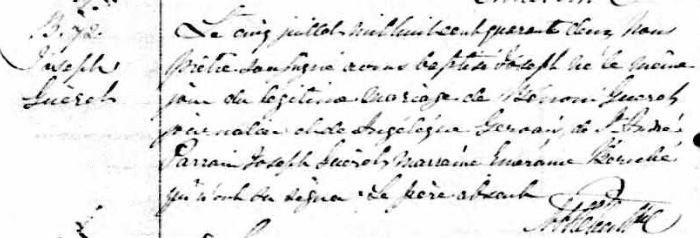 B. 72.
Joseph
Guérels
Le cinq juillet mil huit cent quarante deux Nous
Prêtre soussigné avons baptisé Joseph né le même
jour du légitime mariage de Bénoni Guerels
journalier et de Angélique Gervais de St André
Parrain Joseph Guérels Marraine Emerance
qui n'ont su signer. Le père absent